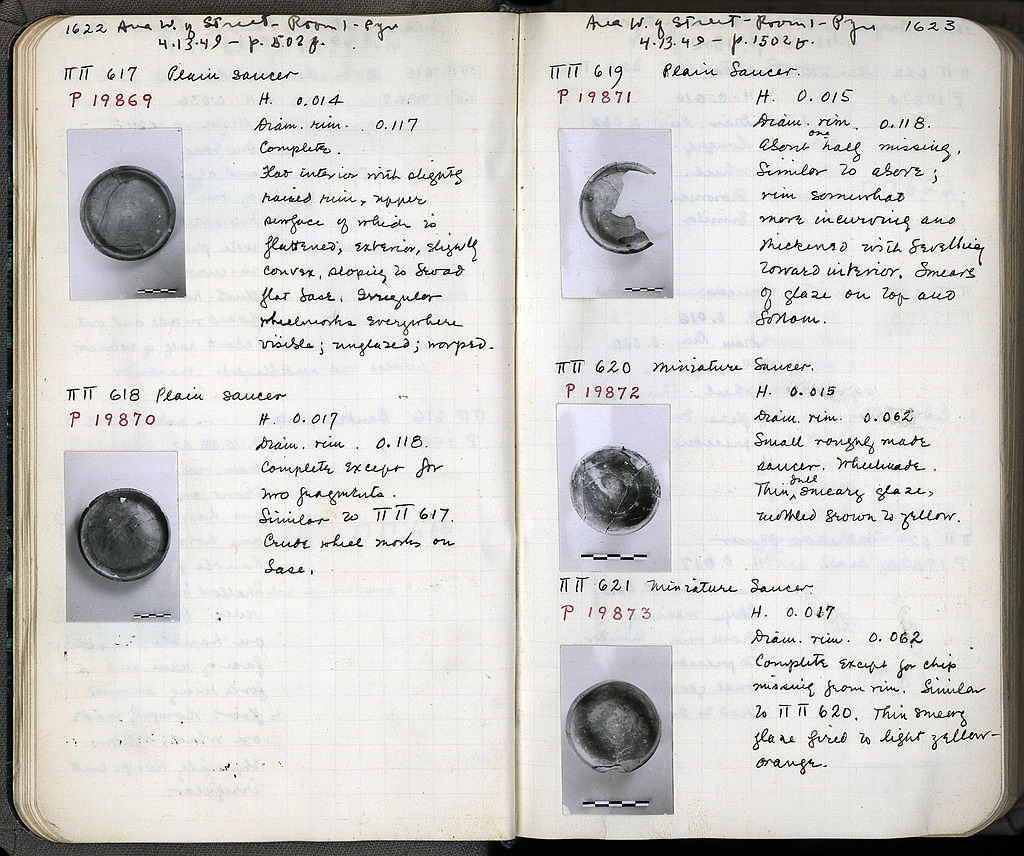 1622 Area W. of Street - Room 1 - Pyre
4.13.49 - p. 1502 f.
ΠΠ 617 Plain saucer
P 19869
H. 0.014
Diam. rim. 0.117
Complete.
Flat interior with slightly
raised rim, upper
surface of which is
flattened; exterior, slightly
convex, sloping to broad
flat base. Irregular
wheelmarks everywhere
visible; unglazed; warped.
ΠΠ 618 Plain saucer
P 19870
H. 0.017
Diam. rim. 0.118.
Complete except for
two fragments.
Similar to ΠΠ 617.
Crude wheel marks on
base.
Area W. of Street - Room 1 - Pyre 1623
4.13.49 - p. 1502 f.
ΠΠ 619 Plain Saucer.
P 19871
H. 0.015
Diam. rim. 0.118.
About one half missing.
Similar to above;
rim somewhat
more incurving and
thickened with bevelling
toward interior. Smears
of glaze on top and
bottom.
ΠΠ 620 Miniature Saucer.
P 19872
H. 0.015
Diam. rim. 0.062
Small roughly made
saucer. Wheelmade.
Thin, dull smeary glaze,
mottled brown to yellow.
ΠΠ 621 Miniature Saucer.
P 19873
H. 0.017
Diam. rim. 0.062
Complete except for chip
missing from rim. Similar
to ΠΠ 620. Thin smeary
glaze fired to light yellow-
orange.